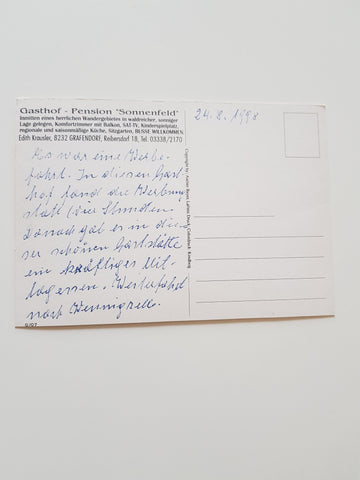 Gasthof - Pension "Sonnenfeld"
Inmitten eines herrlichen Wandergebietes in waldreicher, sonniger
Lage gelegen, Komfortzimmer mit Balkon, SAT-TV, Kinderspielplatz,
regionale und saisonmäßige Küche, Sitzgarten, BUSSE WILLKOMMEN.
Edith Krausler, 8232 GRAFENDORF, Reibersdorf 18, Tel. 03338/2170
24.8.1998
Es war eine Werbe-
fahrt. In diesen Gast
hof fand die Werbung
statt (vier Stunden
danach gab es in die
ser schönen Gaststätte
ein kräftiges Mit-
tagessen. Weiterfahrt
nach
9/97